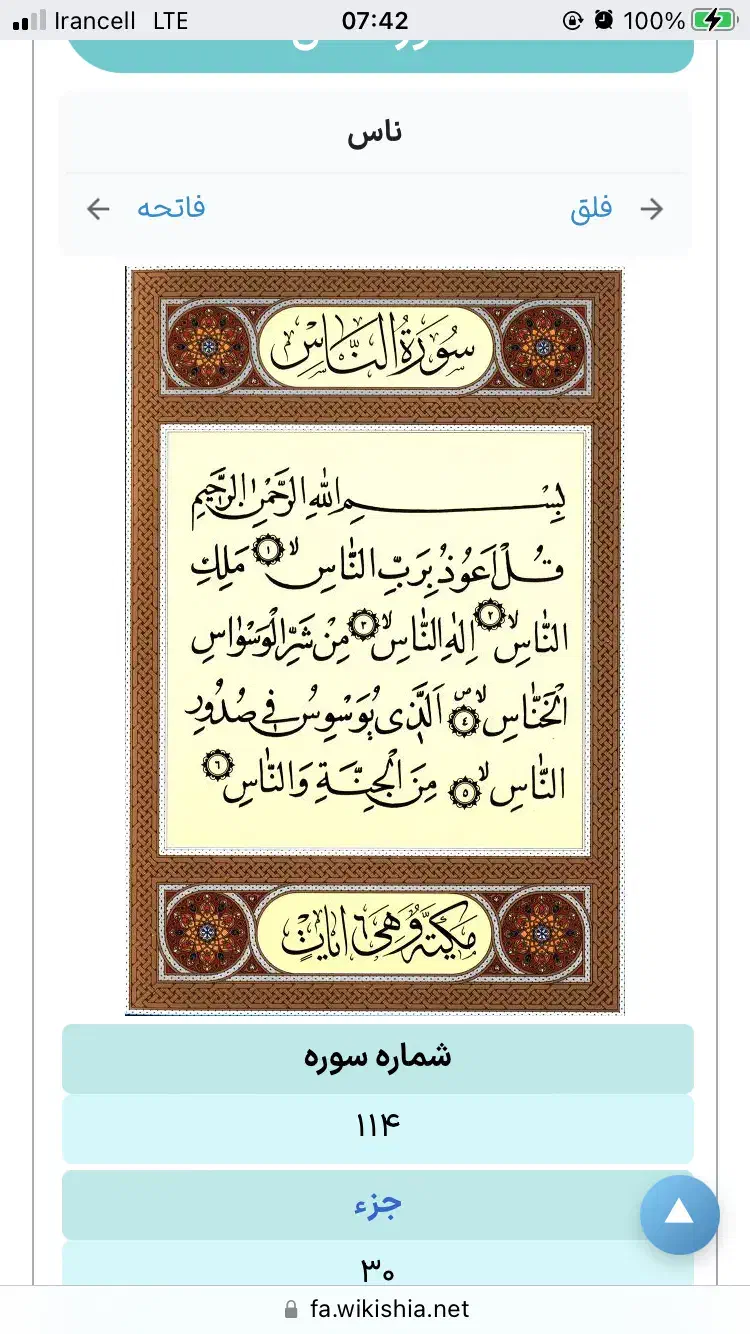 Irancell LTE 07:42 100%
ناس
→ فلق فاتحه ←
سُورَةُ النَّاسِ
بِسْمِ اللّٰهِ الرَّحْمٰنِ الرَّحِیمِ
قُلْ اَعُوذُ بِرَبِّ النَّاسِ ۙ ﴿١﴾ مَلِكِ
النَّاسِ ۙ ﴿٢﴾ اِلٰهِ النَّاسِ ۙ ﴿٣﴾ مِنْ شَرِّ الْوَسْوَاسِ
الْخَنَّاسِ ۙ ﴿٤﴾ اَلَّذِی یُوَسْوِسُ فِی صُدُورِ
النَّاسِ ۙ ﴿٥﴾ مِنَ الْجِنَّةِ وَالنَّاسِ ﴿٦﴾
مَكِّیَّةٌ وَهِیَ ٦ اٰیَاتٍ
شماره سوره
۱۱۴
جزء
۳۰
fa.wikishia.net